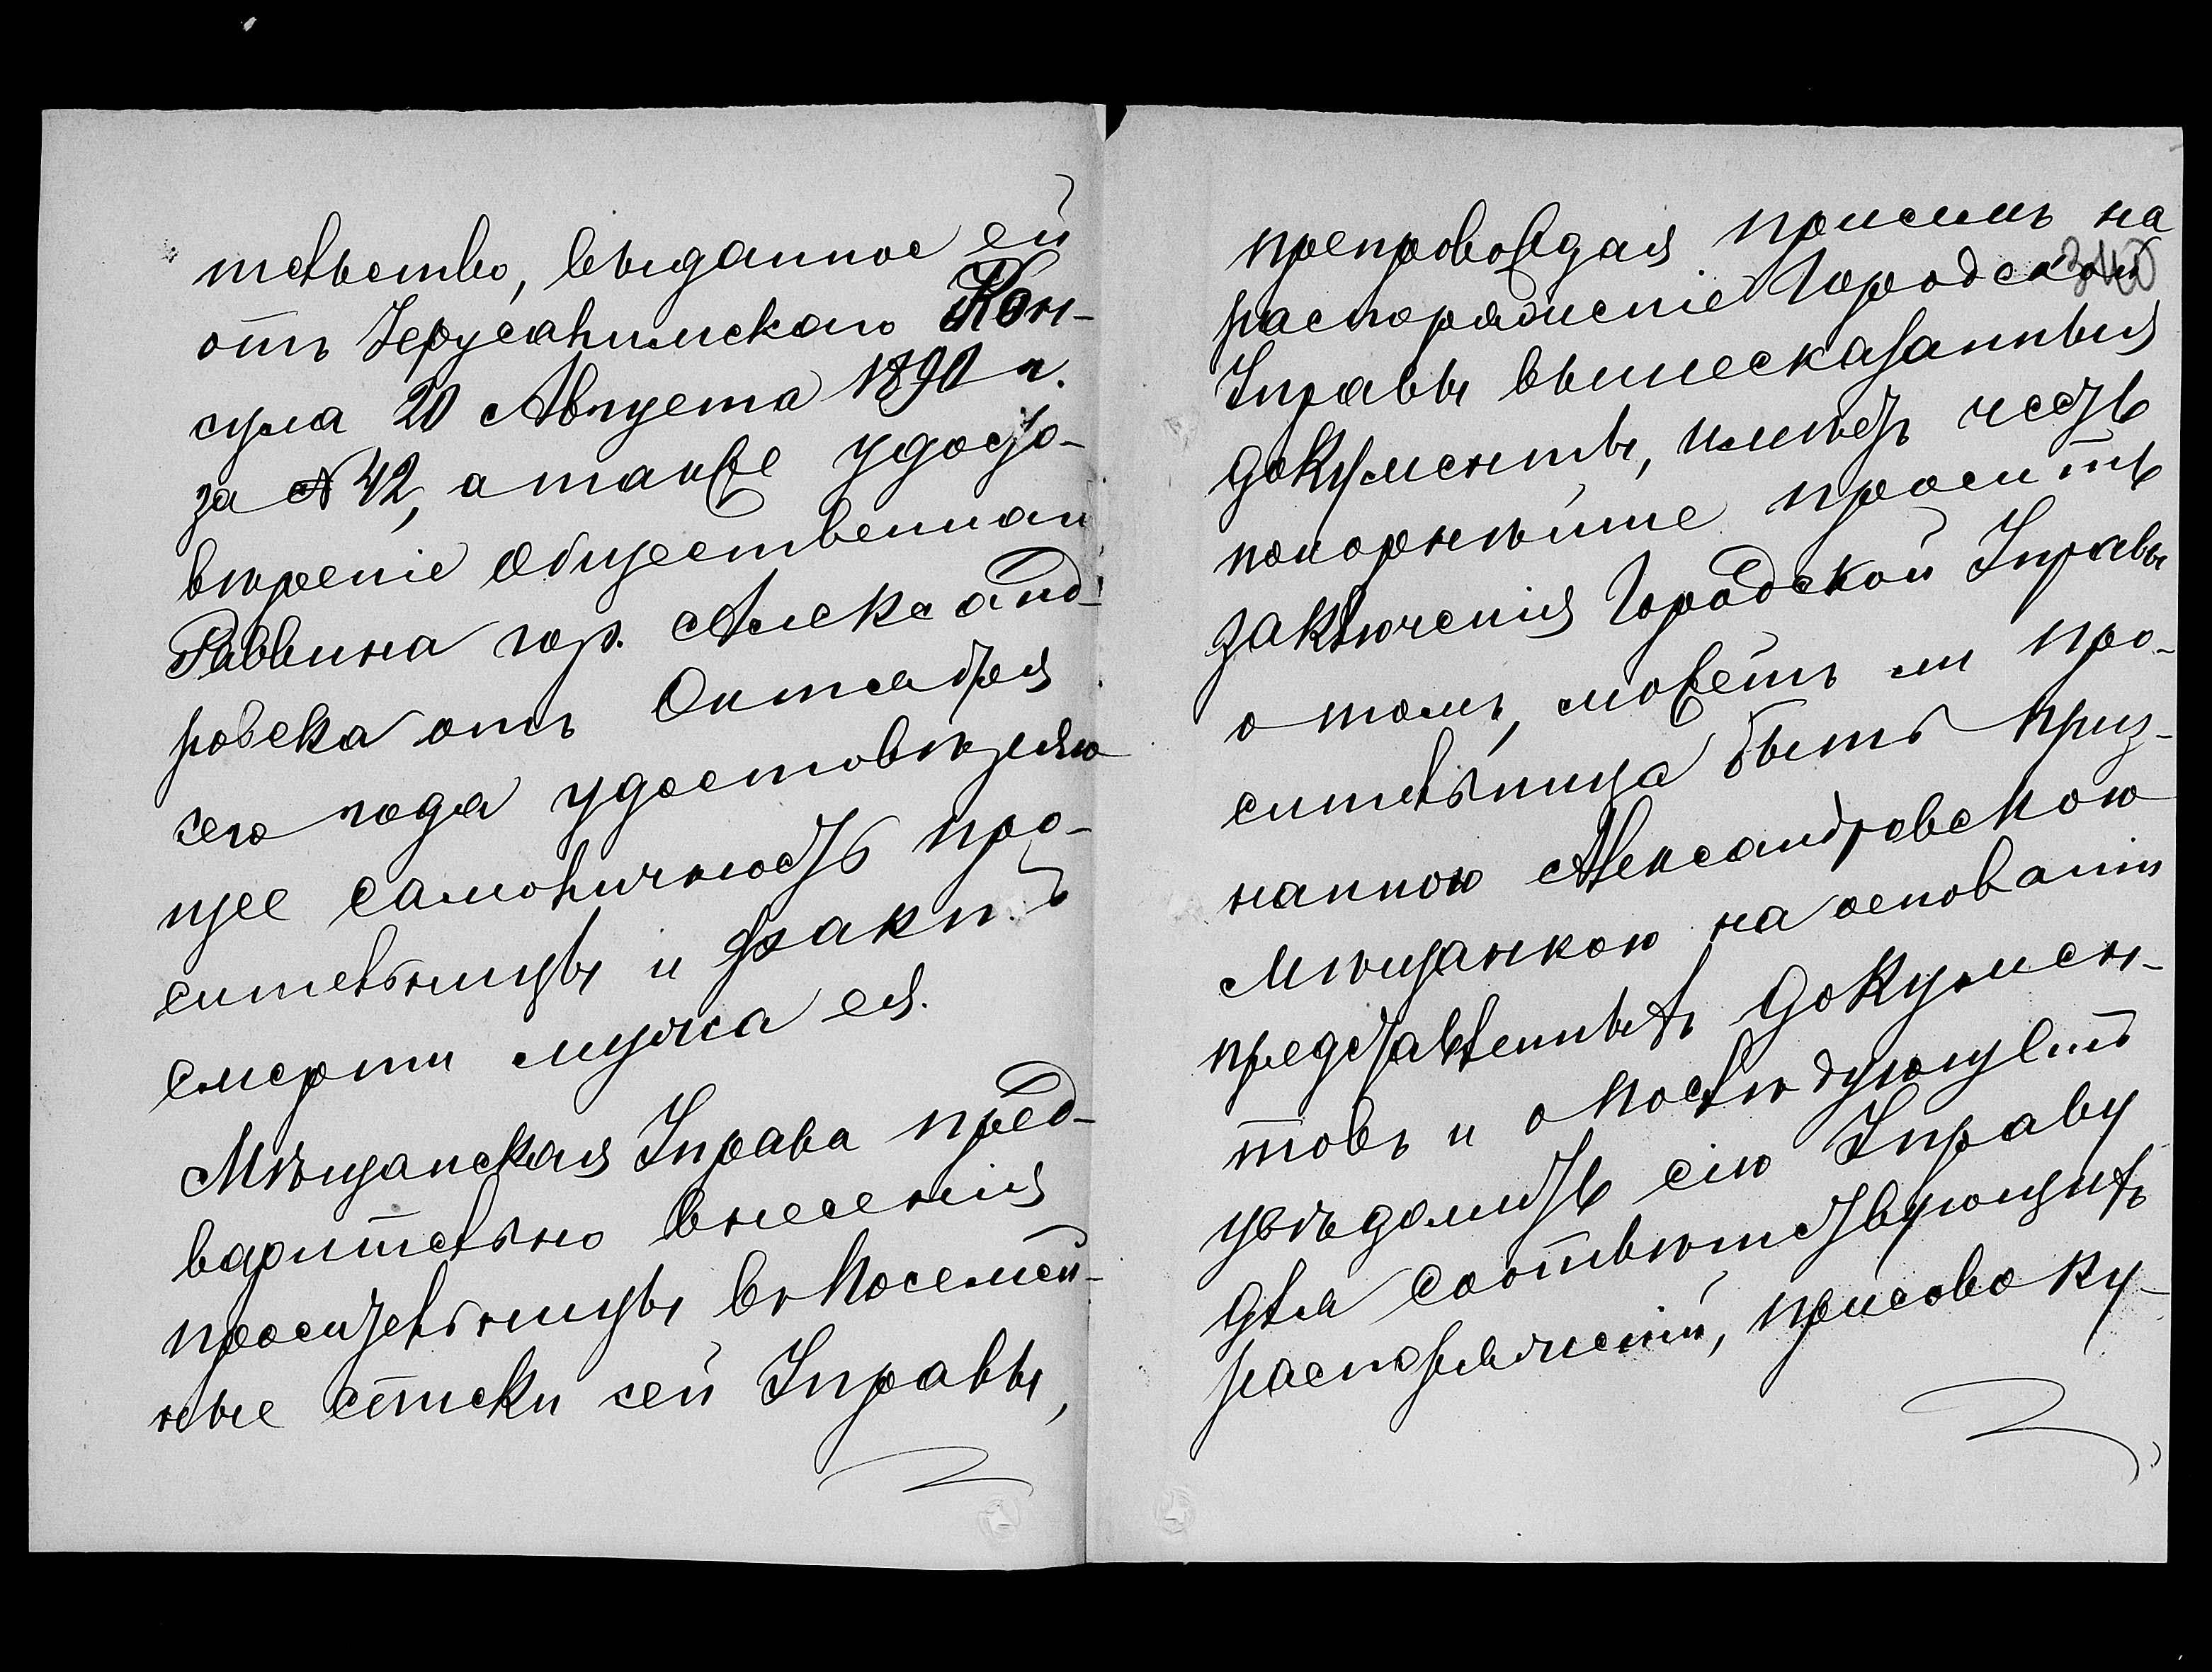 тельство, выданное ей
отъ Іерусалимскаго Кон-
сула 20 Августа 1890 г.
за № 42, а также удосто-
вѣреніе Общественнаго
Раввина гор. Александ-
ровска отъ Октября
сего года удостовѣряю
щее самоличность про-
сительницы и фактъ
смерти мужа ея.
Мѣщанская Управа пред-
варительно внесенія
просительницы въ посемей-
ные списки сей Управы,
препровождая присемъ на
340
распоряженіе Городской
Управы вышесказанныя
документы, имѣетъ честь
покорнѣйше просить
заключенія Городской Управы
о томъ, можетъ ли про-
сительница быть приз-
нанною Александровскою
Мѣщанкою на основаніи
представленныхъ докумен-
товъ и о послѣдующемъ
увѣдомить сію Управу
для соотвѣтствующихъ
распоряженій, присовоку-